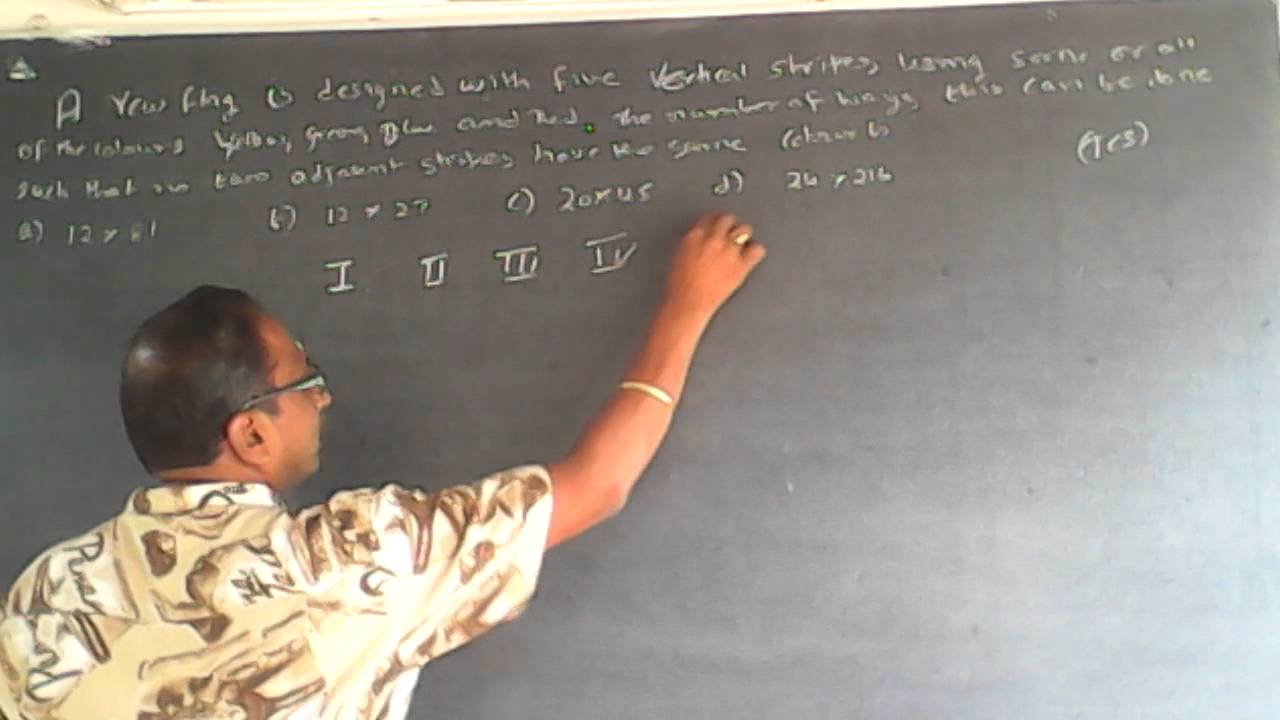 A new flag is designed with five vertical stripes, using some or all
of the colours yellow, green, Blue and Red. the number of ways this can be done
such that no two adjacent stripes have the same colour is (TCS)
a) 12 × 81 b) 12 × 27 c) 20 × 45 d) 24 × 216
I II III IV